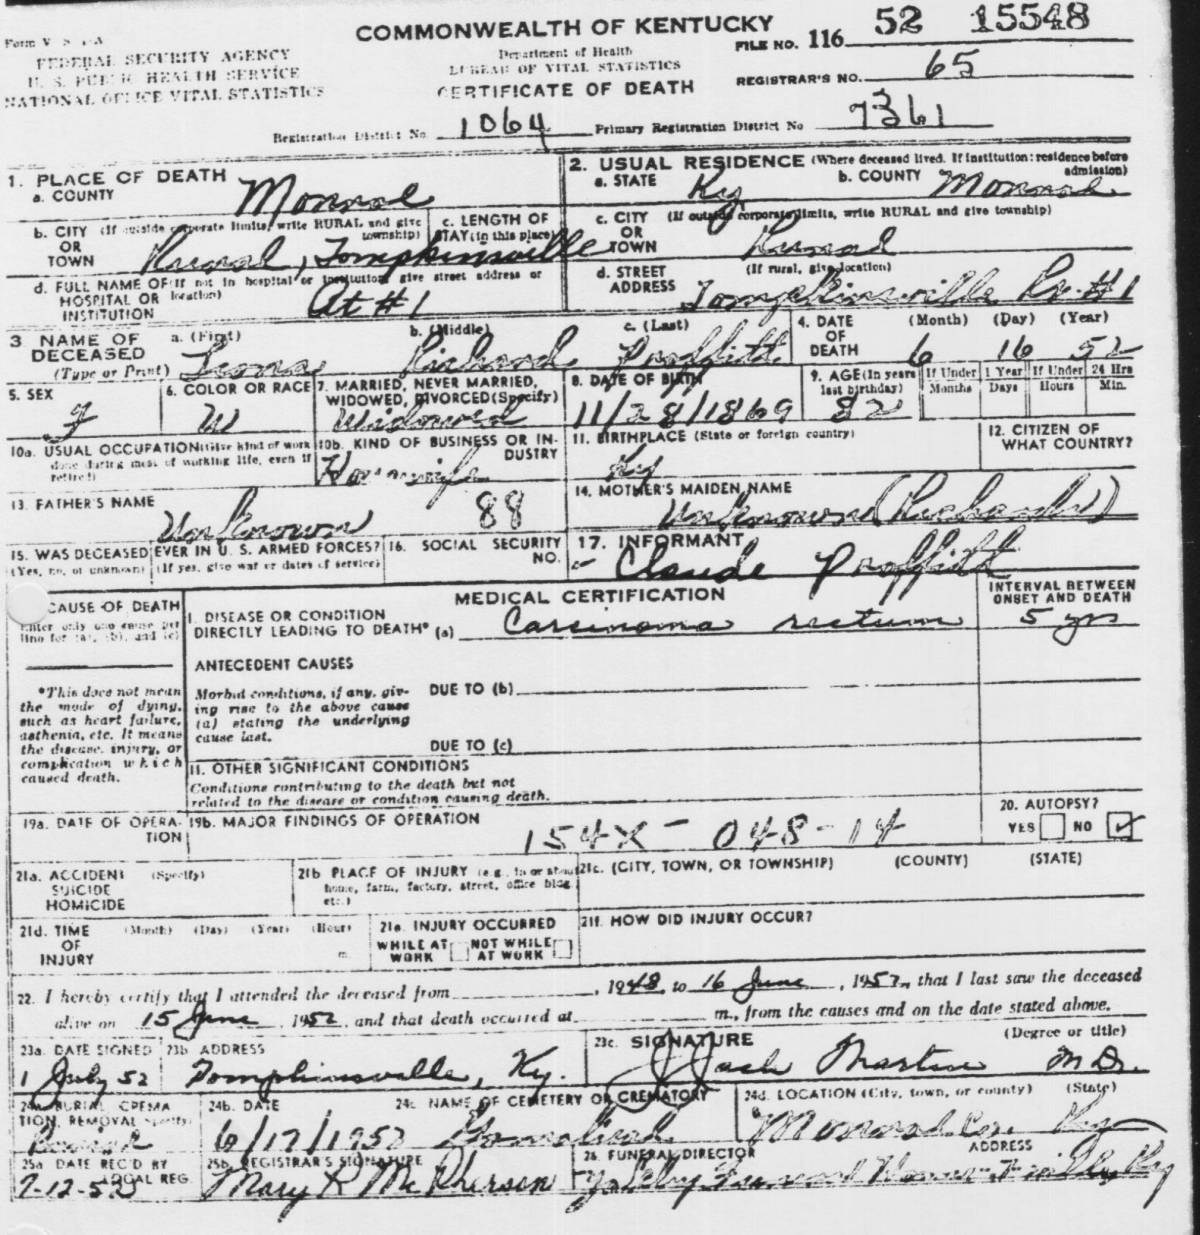 COMMONWEALTH OF KENTUCKY
FEDERAL SECURITY AGENCY
U. S. PUBLIC HEALTH SERVICE
NATIONAL OFFICE VITAL STATISTICS
Department of Health
BUREAU OF VITAL STATISTICS
CERTIFICATE OF DEATH
FILE NO. 116 52 15548
REGISTRAR'S NO. 65
Registration District No 1064 Primary Registration District No 7361
1. PLACE OF DEATH
a. COUNTY Monroe
2. USUAL RESIDENCE (Where deceased lived. If institution: residence before admission)
a. STATE Ky b. COUNTY Monroe
b. CITY (If outside corporate limits, write RURAL and give township)
OR
TOWN Rural, Tompkinsville
c. LENGTH OF
STAY (in this place)
c. CITY (If outside corporate limits, write RURAL and give township)
OR
TOWN Rural
d. FULL NAME OF (If not in hospital or institution, give street address or location)
HOSPITAL OR
INSTITUTION Rt #1
d. STREET
ADDRESS
(If rural, give location)
Tompkinsville Rr. #1
3 NAME OF
DECEASED
(Type or Print)
a. (First) b. (Middle) c. (Last)
Leona Richard Proffitt
4. DATE
OF
DEATH
(Month) (Day) (Year)
6 16 52
5. SEX
F
6. COLOR OR RACE
W
7. MARRIED, NEVER MARRIED,
WIDOWED, DIVORCED (Specify)
Widowed
8. DATE OF BIRTH
11/28/1869
9. AGE (In years
last birthday)
82
If Under 1 Year
Months Days
If Under 24 Hrs
Hours Min.
10a. USUAL OCCUPATION (Give kind of work
done during most of working life, even if
retired)
10b. KIND OF BUSINESS OR IN-
DUSTRY
Housewife
11. BIRTHPLACE (State or foreign country)
Ky
12. CITIZEN OF
WHAT COUNTRY?
13. FATHER'S NAME
Unknown 88
14. MOTHER'S MAIDEN NAME
Unknown (Richards)
15. WAS DECEASED EVER IN U. S. ARMED FORCES?
(Yes, no, or unknown) (If yes, give war or dates of service)
16. SOCIAL SECURITY
NO.
17. INFORMANT
Claude Proffitt
MEDICAL CERTIFICATION
INTERVAL BETWEEN
ONSET AND DEATH
CAUSE OF DEATH
Enter only one cause per
line for (a), (b), and (c)
I. DISEASE OR CONDITION
DIRECTLY LEADING TO DEATH* (a) Carcinoma rectum 5 yrs
ANTECEDENT CAUSES
*This does not mean
the mode of dying,
such as heart failure,
asthenia, etc. It means
the disease, injury, or
complication which
caused death.
Morbid conditions, if any, giv-
ing rise to the above cause
(a) stating the underlying
cause last.
DUE TO (b)
DUE TO (c)
II. OTHER SIGNIFICANT CONDITIONS
Conditions contributing to the death but not
related to the disease or condition causing death.
19a. DATE OF OPERA-
TION
19b. MAJOR FINDINGS OF OPERATION
154X - 048-14
20. AUTOPSY?
YES NO ✓
21a. ACCIDENT (Specify)
SUICIDE
HOMICIDE
21b PLACE OF INJURY (e.g., in or about
home, farm, factory, street, office bldg.
etc.)
21c. (CITY, TOWN, OR TOWNSHIP) (COUNTY) (STATE)
21d. TIME (Month) (Day) (Year) (Hour)
OF
INJURY m.
21e. INJURY OCCURRED
WHILE AT WORK NOT WHILE AT WORK
21f. HOW DID INJURY OCCUR?
22. I hereby certify that I attended the deceased from , 1948, to 16 June, 1952, that I last saw the deceased
alive on 15 June, 1952, and that death occurred at m., from the causes and on the date stated above.
23a. DATE SIGNED
1 July 52
23b. ADDRESS
Tompkinsville, Ky.
23c. SIGNATURE (Degree or title)
Jack Martin M.D.
24a. BURIAL, CREMA
TION, REMOVAL (Specify)
Burial
24b. DATE
6/17/1952
24c NAME OF CEMETERY OR CREMATORY
Gamalieal
24d. LOCATION (City, town, or county) (State)
Monroe Co. Ky
25a DATE REC'D BY
LOCAL REG.
7-12-52
25b REGISTRAR'S SIGNATURE
Mary K McPherson
26. FUNERAL DIRECTOR ADDRESS
Funeral Home Ky